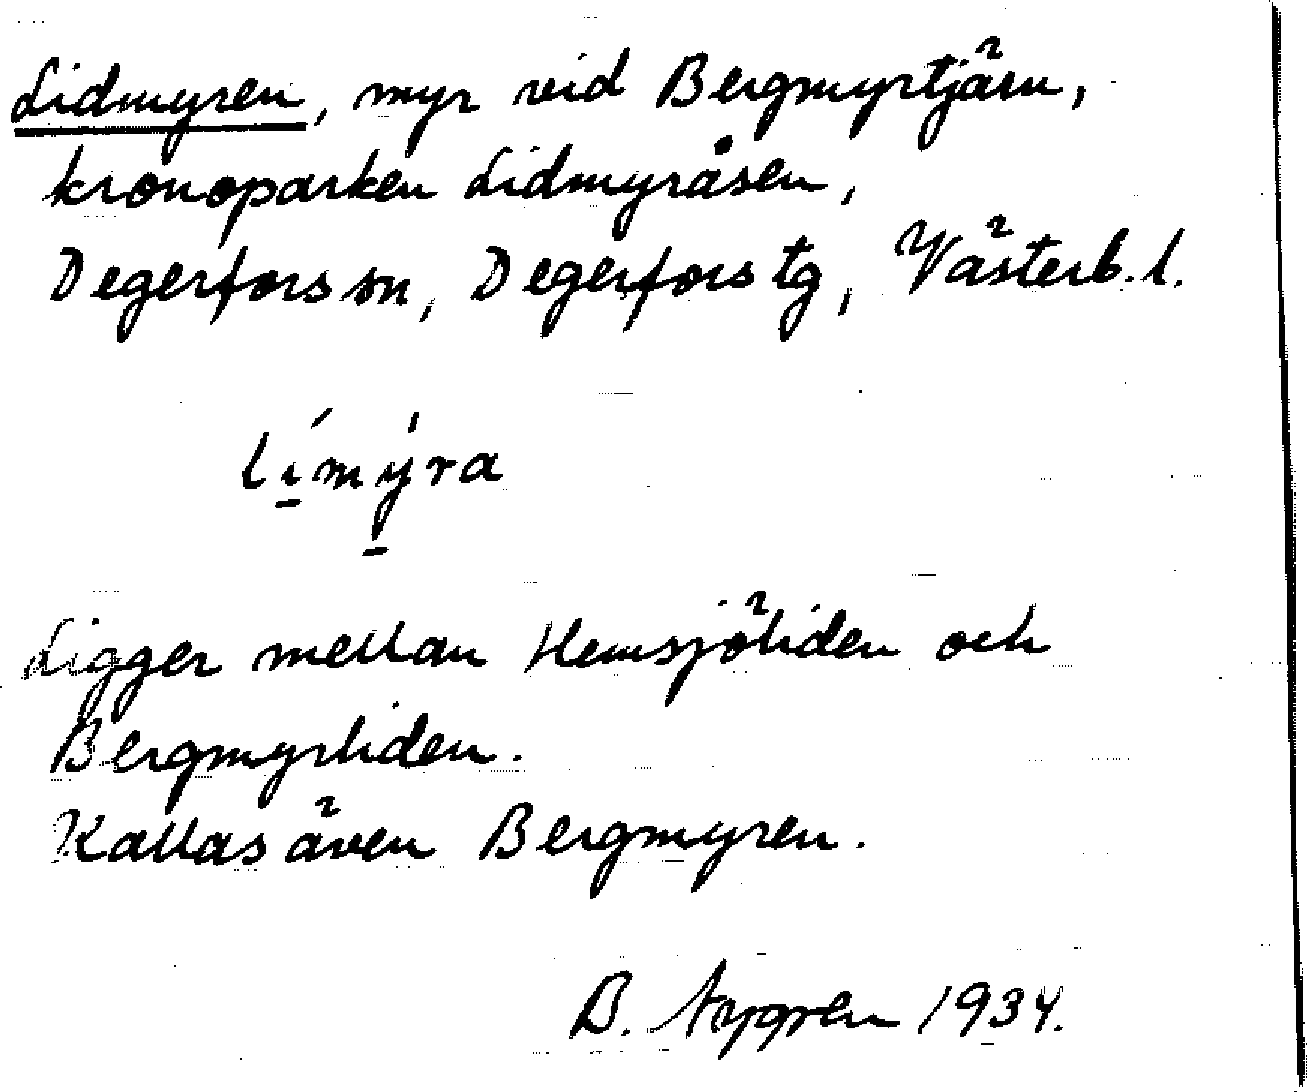 Lidmyren, myr vid Bergmyrtjärn,
kronoparken Lidmyråsen,
Degerfors sn, Degerfors tg, Västerb. l.
lí̱mý̱ra
Ligger mellan Hemsjöliden och
Bergmyrliden.
Kallas även Bergmyren.
B. Nygren 1934.